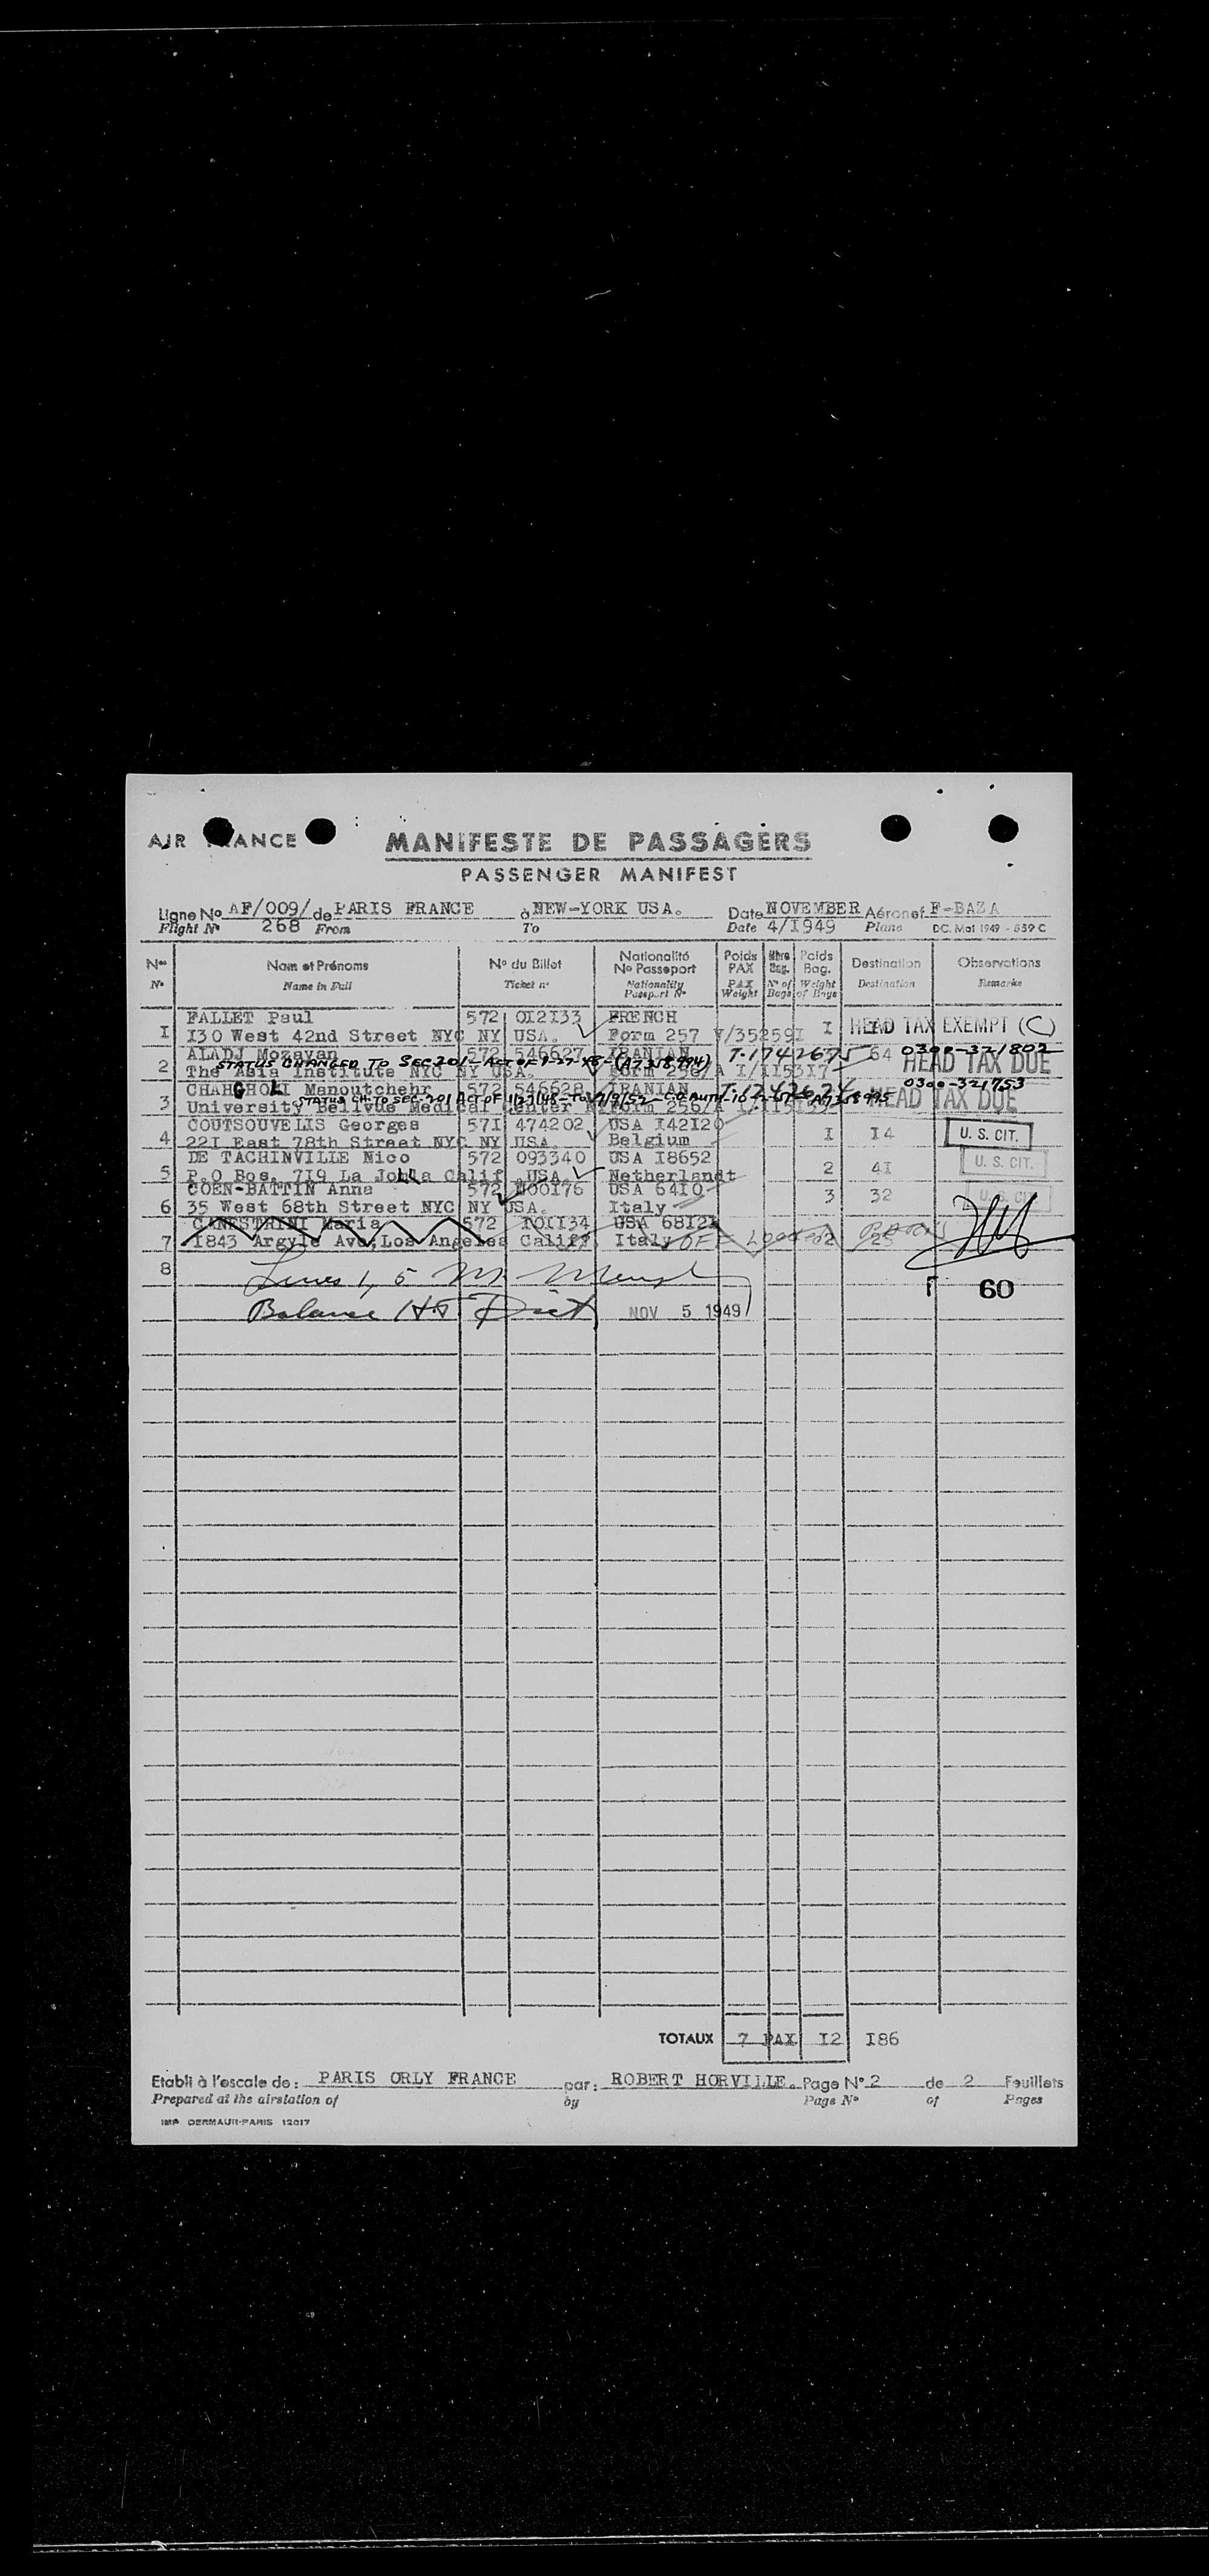 AIR FRANCE
MANIFESTE DE PASSAGERS
PASSENGER MANIFEST
Ligne No AF/009/ de PARIS FRANCE à NEW-YORK USA. Date NOVEMBER Aéronef F-BAZA
Flight No 268 From To Date 4/I949 Plane DC. Mai 1949 - 559 C
Nos Nom et Prénoms No du Billet Nationalité No Passeport Poids PAX Nbre Bag. Poids Bag. Destination Observations
No Name in Full Ticket no Nationality Passport No PAX Weight No of Bags Weight of Bags Destination Remarks
FALLET Paul 572 0I2I33 FRENCH
I I30 West 42nd Street NYC NY USA. Form 257 V/35259I I HEAD TAX EXEMPT (C)
ALADJ Mozayan 572 546627 IRANIAN T-1742675 64 0300-321802
STATUS CHANGED TO SEC 201 - ACT OF (A7358994)
2 The Asia Institute NYC NY USA. Form 256/A I/II53I7 HEAD TAX DUE
CHARGHOLI Manoutchehr 572 546628 IRANIAN 0300-321753
STATUS CH. TO SEC. 201 ACT OF A7358995
3 University Bellvue Medical Center Form 256/A HEAD TAX DUE
COUTSOUVELIS Georges 57I 474202 USA I42I20
4 22I East 78th Street NYC NY USA Belgium I I4 U. S. CIT.
DE TACHINVILLE Nico 572 093340 USA I8652
5 P.O Bos. 7I9 La Jolla Calif USA Netherlandt 2 4I U. S. CIT.
COEN-BATTIN Anna 572 I00I76 USA 64I0
6 35 West 68th Street NYC NY USA. Italy 3 32 U. S. CIT.
CANESTRINI Maria 572 I0II34 USA 68I2I
7 I843 Argyle Ave, Los Angeles Califf, Italy 2 25
8 Lines 1, 5
60
Balance NOV 5 1949
TOTAUX 7 PAX I2 I86
Etabli à l'escale de: PARIS ORLY FRANCE par: ROBERT HORVILLE. Page No 2 de 2 Feuillets
Prepared at the airstation of by Page No of Pages
IMP DERMAUR-PARIS 12017